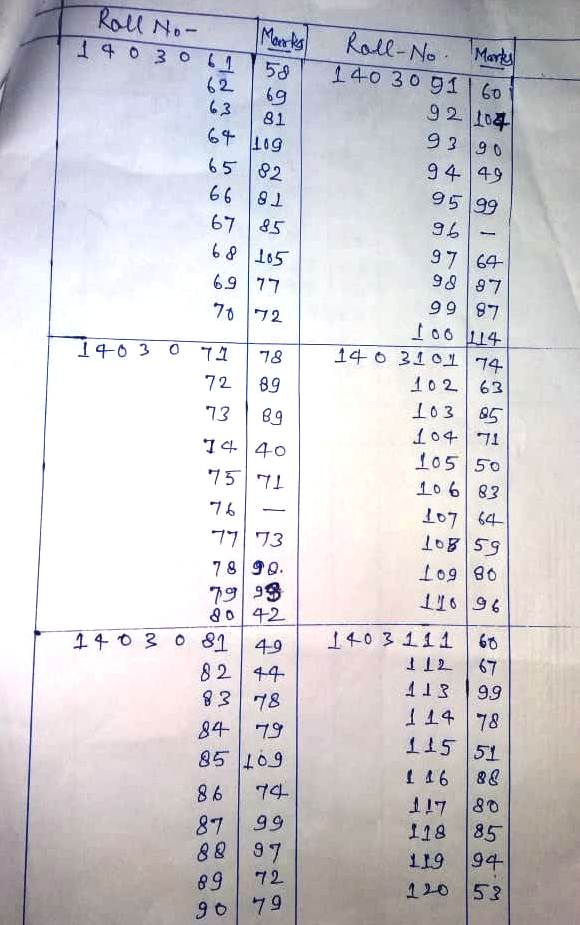 Roll No- Marks Roll-No. Marks
1403061 58 1403091 60
62 69 92 104
63 81 93 90
64 109 94 49
65 82 95 99
66 81 96 —
67 85 97 64
68 105 98 87
69 77 99 87
70 72 100 114
1403071 78 1403101 74
72 89 102 63
73 89 103 85
74 40 104 71
75 71 105 50
76 — 106 83
77 73 107 64
78 90. 108 59
79 109 80
80 42 110 96
1403081 49 1403111 60
82 44 112 67
83 78 113 99
84 79 114 78
85 109 115 51
86 74 116 88
87 99 117 80
88 97 118 85
89 72 119 94
90 79 120 53